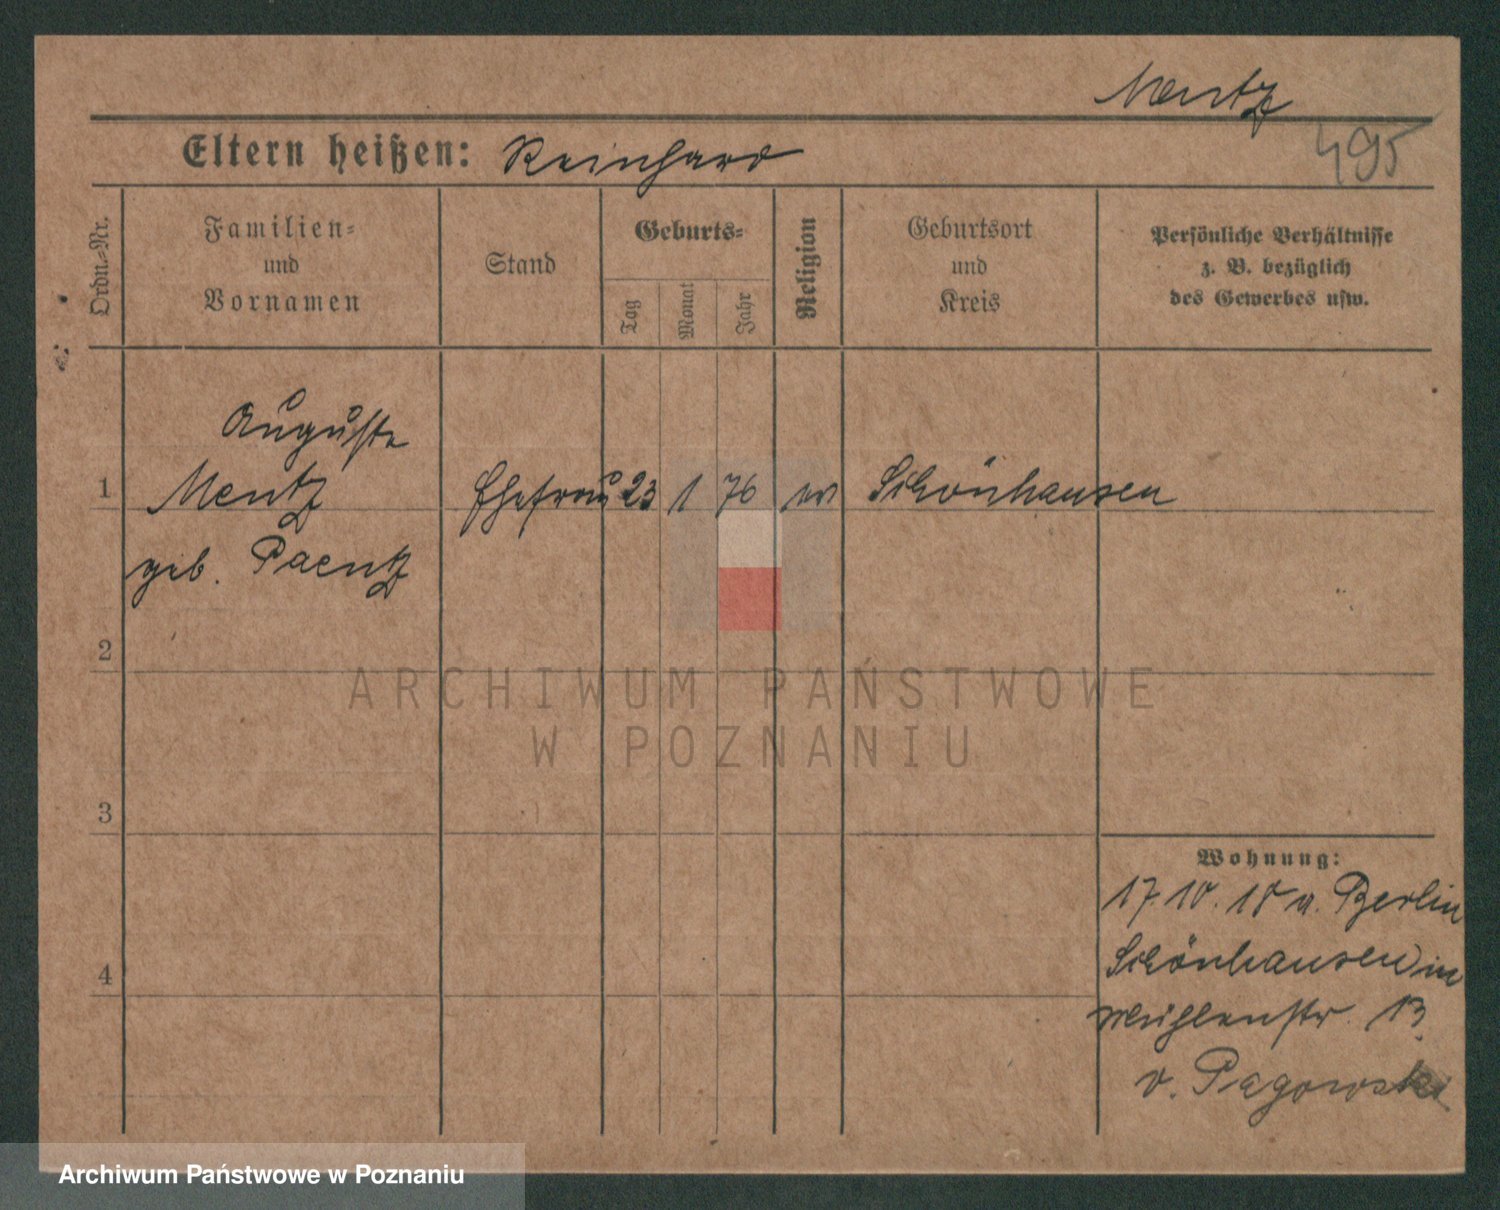 Mentz
495
Eltern heißen: Reinhard
Ordn.-Nr.
Familien-
und
Vornamen
Stand
Geburts-
Tag
Monat
Jahr
Religion
Geburtsort
und
Kreis
Persönliche Verhältnisse
z. B. bezüglich
des Gewerbes usw.
Auguste
1 Mentz Ehefrau 23 1 76 ev Schönhausen
geb. Paentz
2
3
4
Wohnung:
17.10.18 a. Berlin
Schönhausen in
Mühlenstr. 13
v. Pagowski
ARCHIWUM PAŃSTWOWE
W POZNANIU
Archiwum Państwowe w Poznaniu